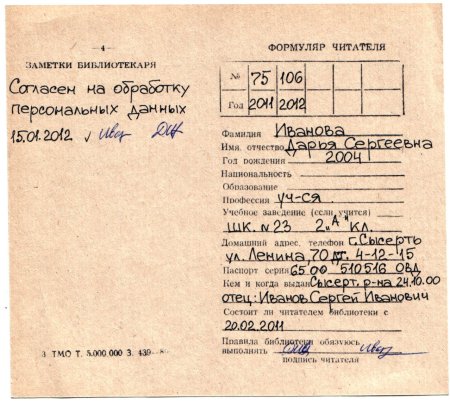 — 4 —
ЗАМЕТКИ БИБЛИОТЕКАРЯ
Согласен на обработку
персональных данных
15.01.2012 v
3 ТМО Т. 5.000.000 З. 439
ФОРМУЛЯР ЧИТАТЕЛЯ
№ 75 106
Год 2011 2012
Фамилия Иванова
Имя, отчество Дарья Сергеевна
Год рождения 2004
Национальность
Образование
Профессия уч-ся
Учебное заведение (если учится)
шк. №23 2„А" кл.
Домашний адрес, телефон г.Сысерть
ул. Ленина, 70 т. 4-12-45
Паспорт серия 65.00 510516 ОВД
Кем и когда выдан Сысерт. р-на 24.10.00
отец: Иванов Сергей Иванович
Состоит ли читателем библиотеки с
20.02.2011
Правила библиотеки обязуюсь
выполнять
подпись читателя